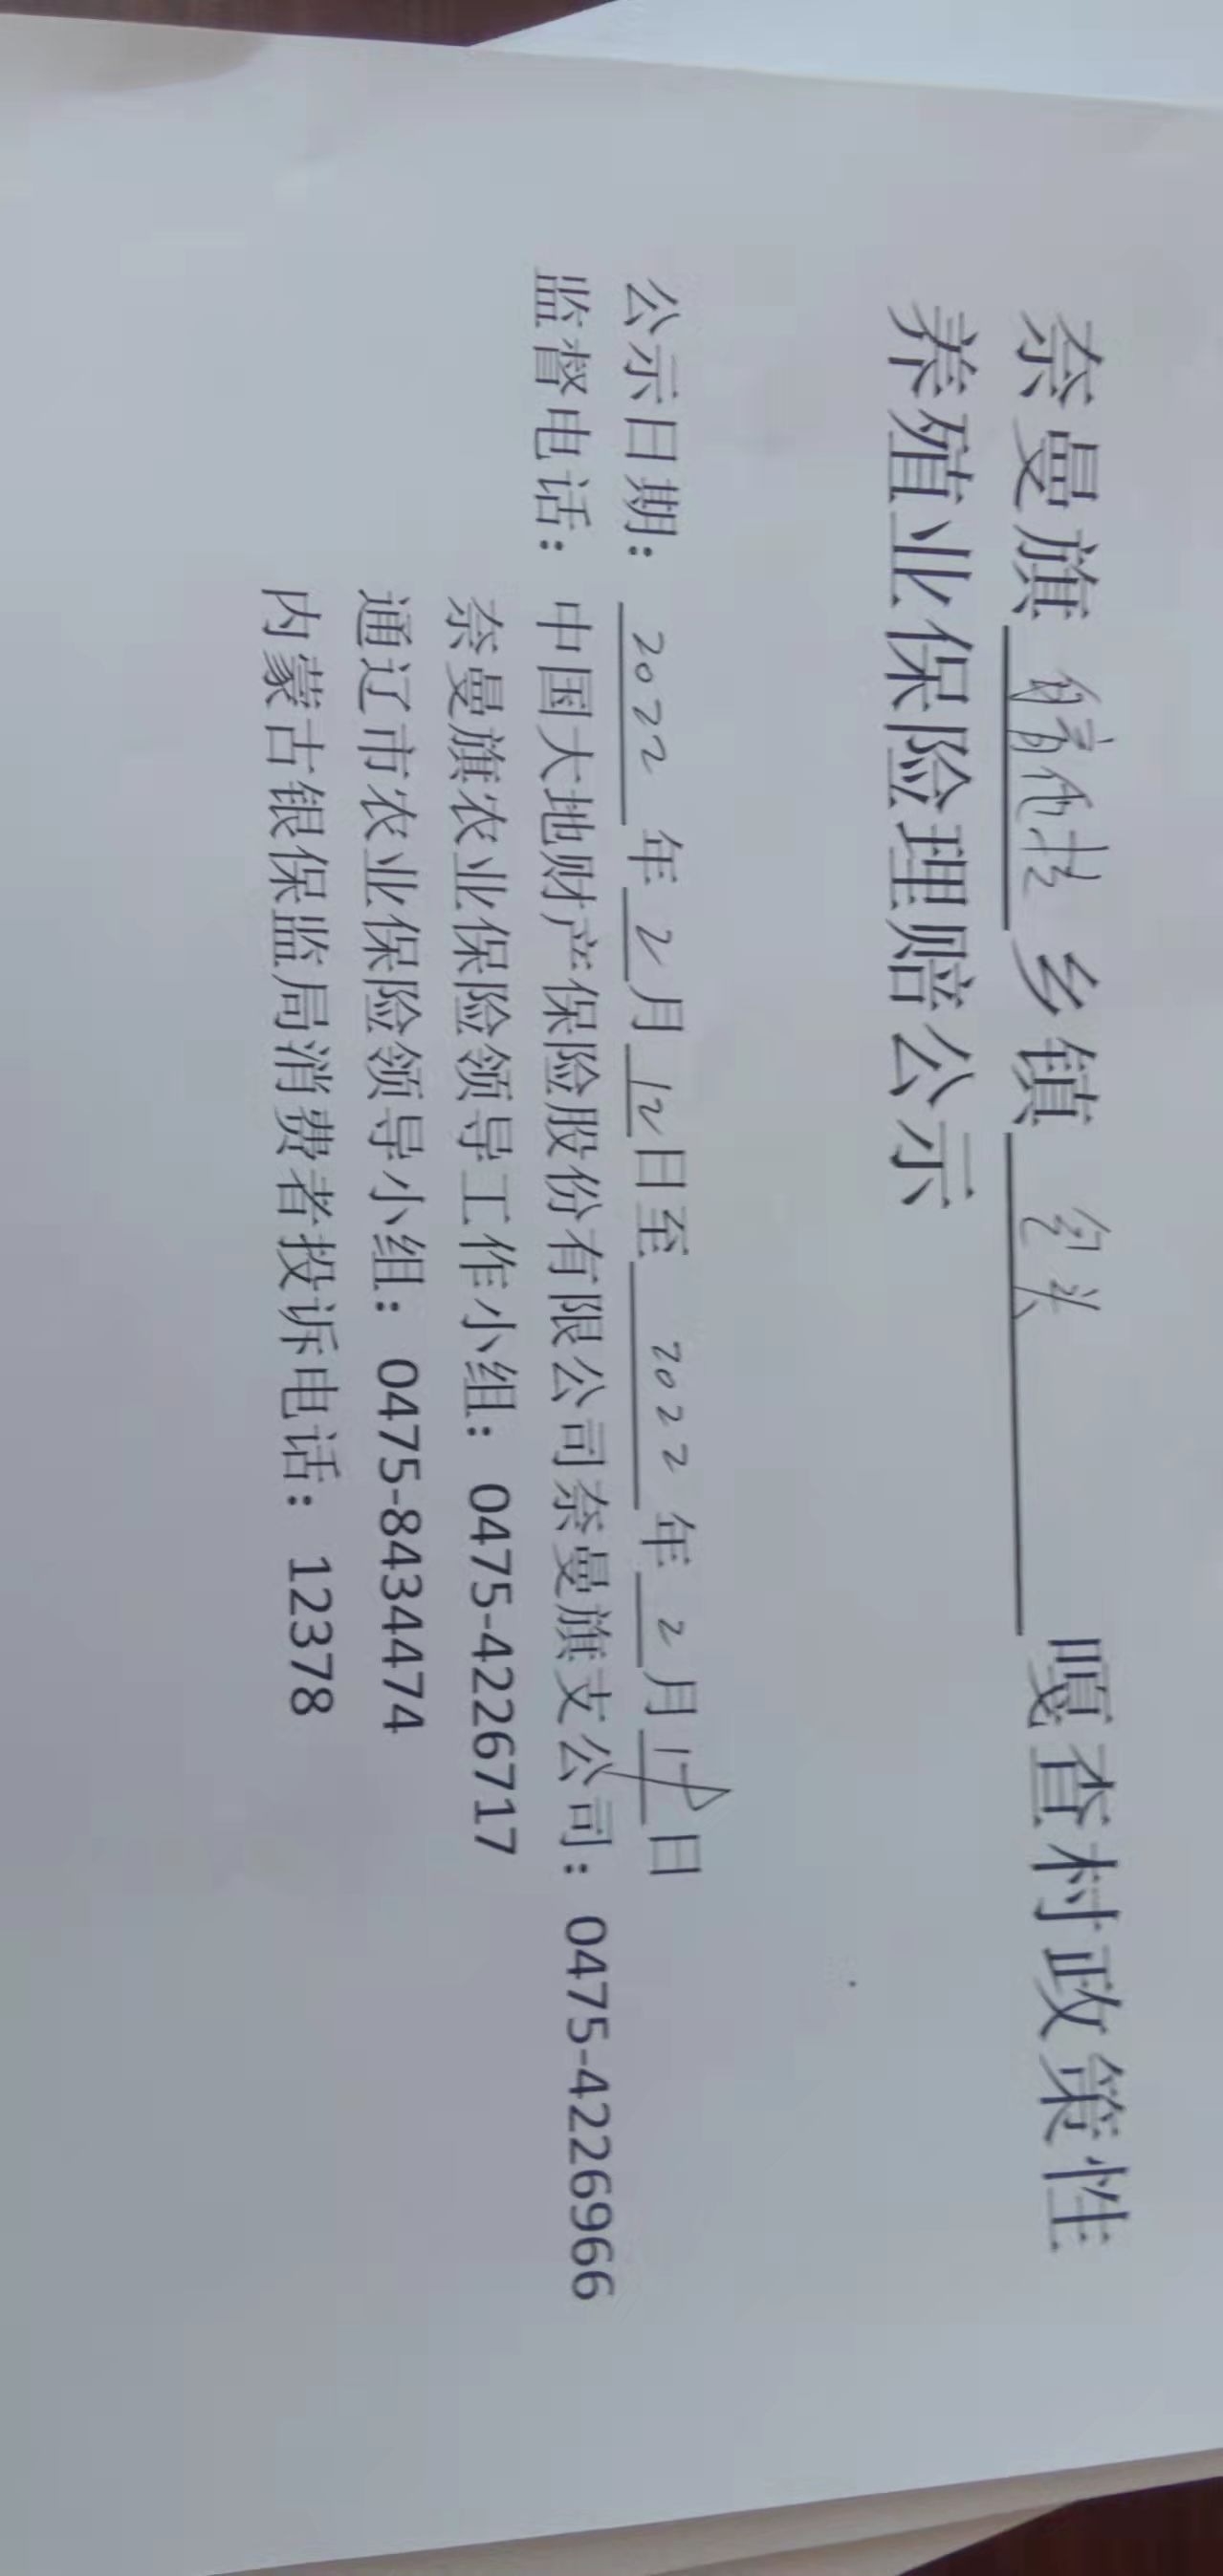 奈曼旗 乡镇 包头 嘎查村政策性
养殖业保险理赔公示
公示日期：2022年2月12日至2022年2月1日
监督电话：中国大地财产保险股份有限公司奈曼旗支公司：0475-4226966
奈曼旗农业保险领导工作小组：0475-4226717
通辽市农业保险领导小组：0475-8434474
内蒙古银保监局消费者投诉电话：12378